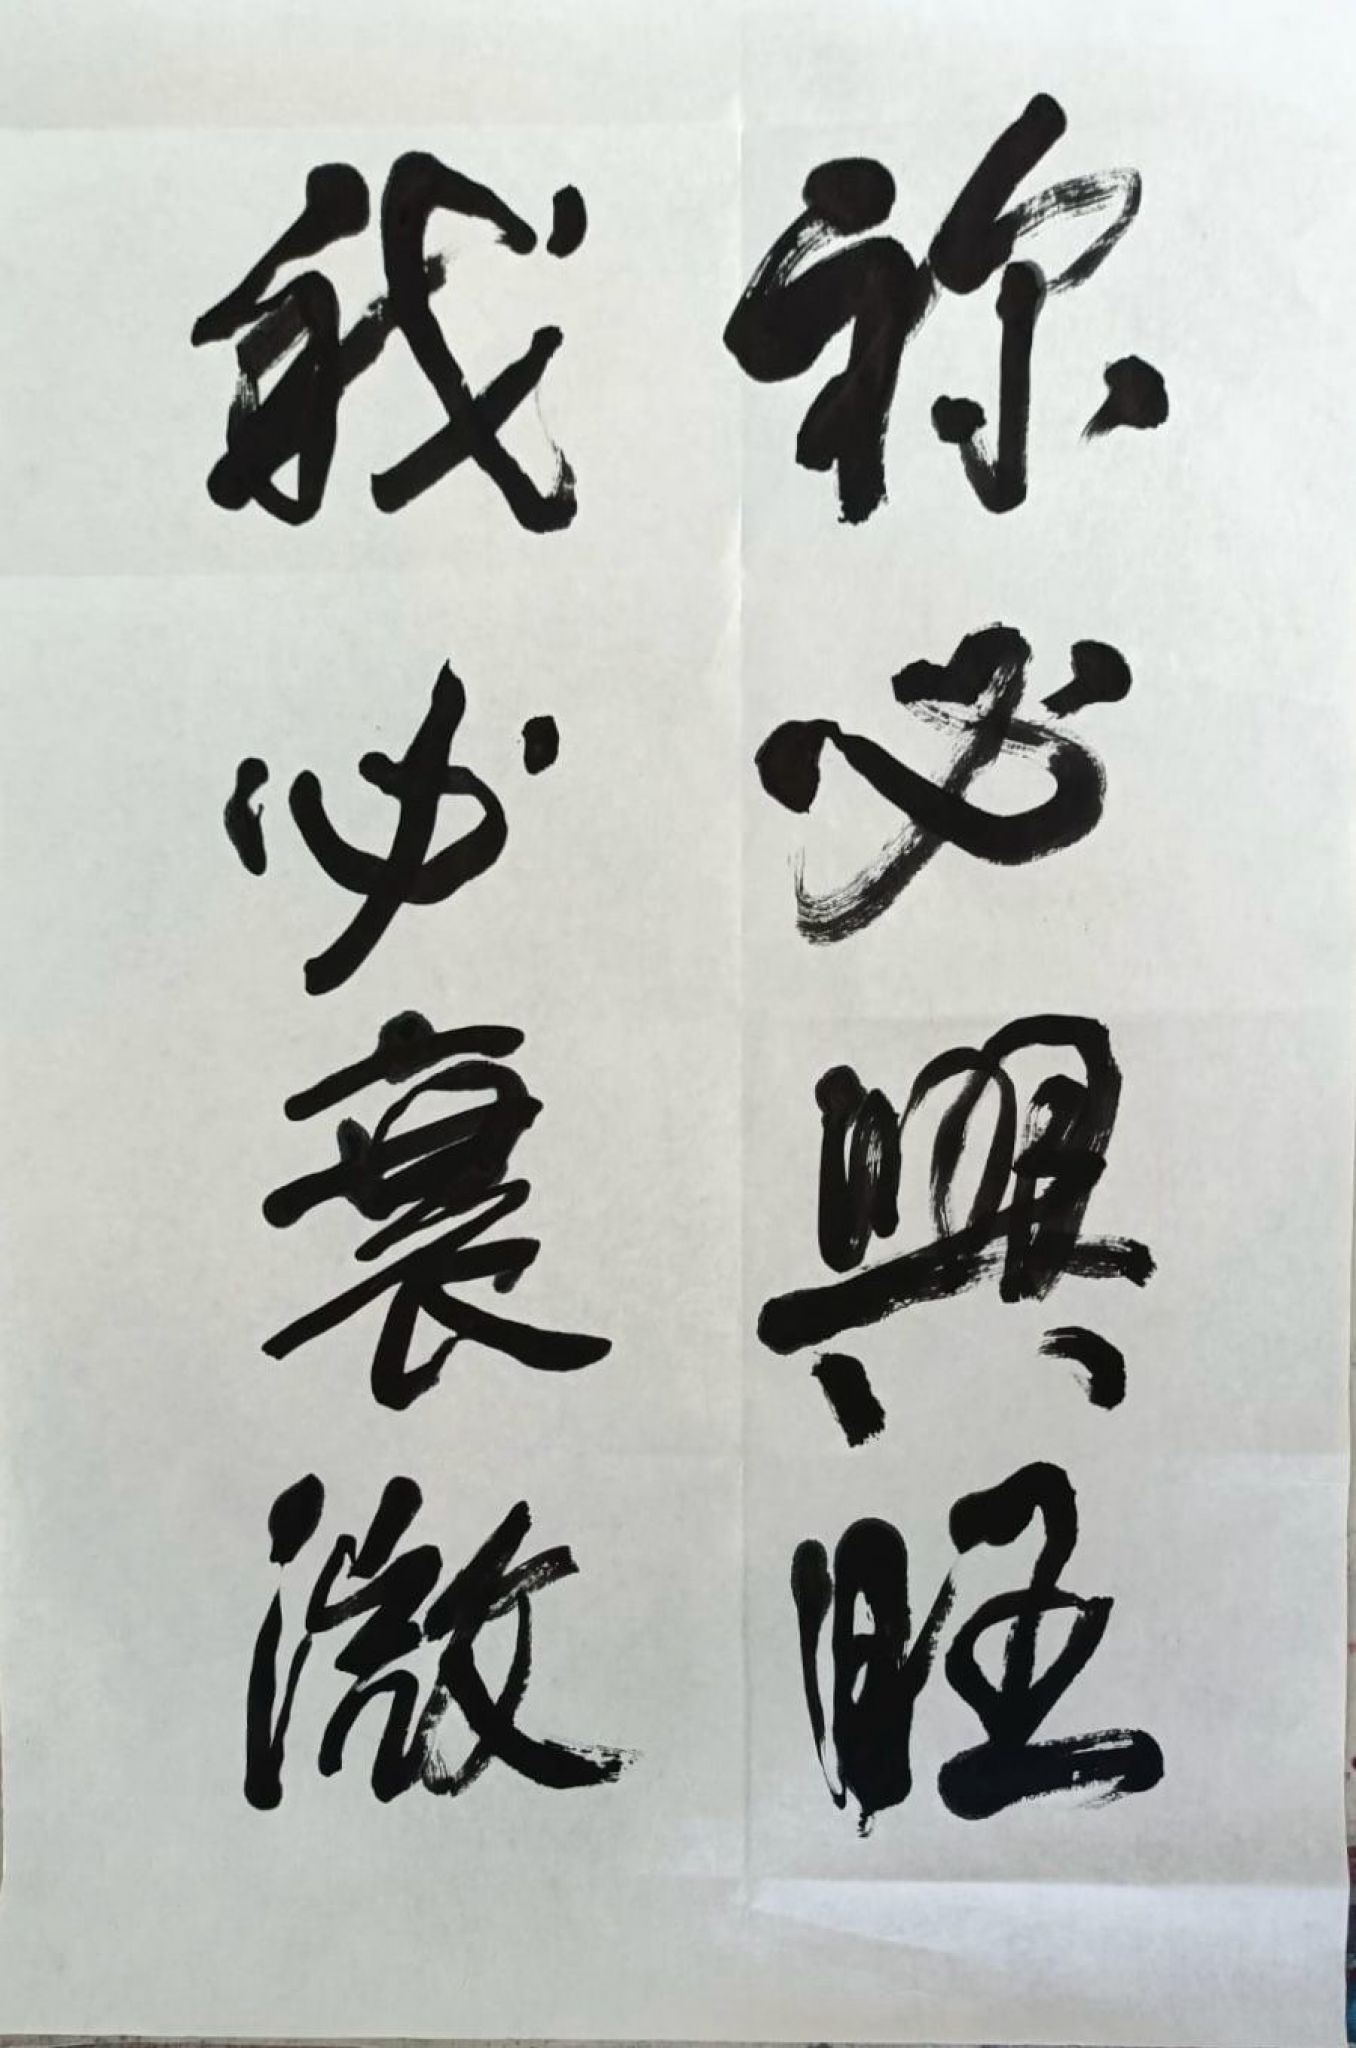 祢必興旺
我必衰微